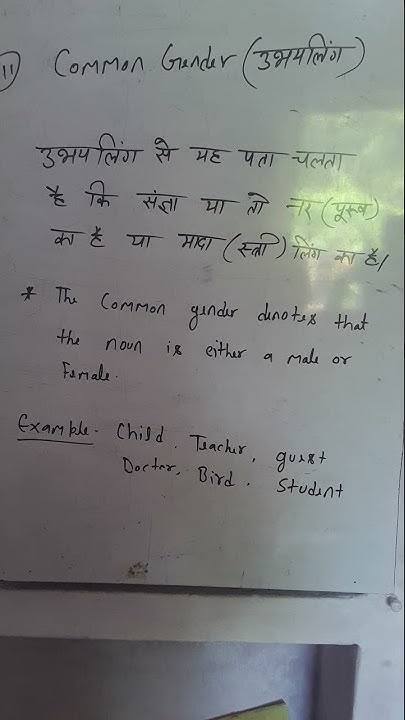 11) Common Gender (उभयलिंग)
उभयलिंग से यह पता चलता
है कि संज्ञा या तो नर (पूरूष)
का है या मादा (स्त्री) लिंग का है।
* The Common gender denotes that
the noun is either a male or
Female.
Example - Child, Teacher, guest
Doctor, Bird, Student